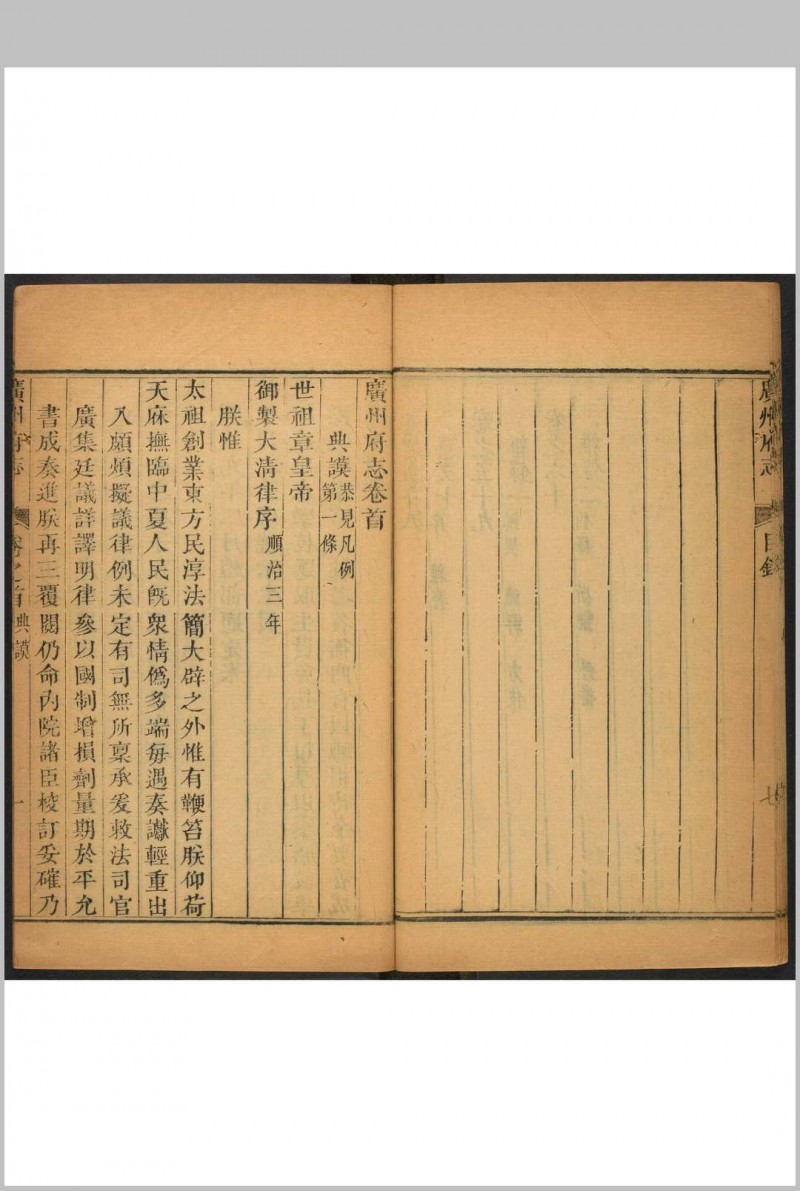 廣州府志
目錄
七
廣州府志卷首
典謨恭見凡例第一條
世祖章皇帝
御製大清律序順治三年
朕惟
太祖創業東方民淳法簡大辟之外惟有鞭笞朕仰荷
天庥撫臨中夏人民旣衆情僞多端每遇奏讞輕重出
入頗煩擬議律例未定有司無所稟承爰敕法司官
廣集廷議詳譯明律參以國制增損劑量期於平允
書成奏進朕再三覆閱仍命內院諸臣校訂妥確乃
廣州府志
卷之首典謨
一